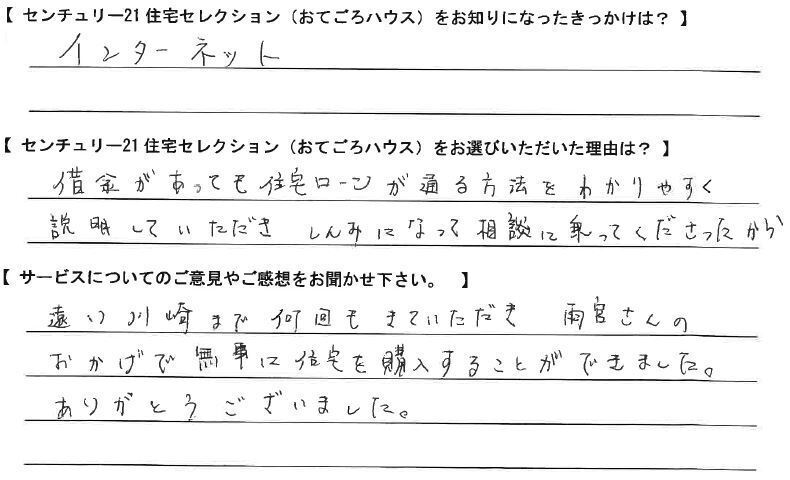 【 センチュリー21 住宅セレクション（おてごろハウス）をお知りになったきっかけは？ 】
インターネット
【 センチュリー21 住宅セレクション（おてごろハウス）をお選びいただいた理由は？ 】
借金があっても住宅ローンが通る方法をわかりやすく
説明していただき しんみになって相談に乗ってくださったから
【 サービスについてのご意見やご感想をお聞かせ下さい。 】
遠い川崎まで何回もきていただき 雨宮さんの
おかげで無事に住宅を購入することができました。
ありがとうございました。